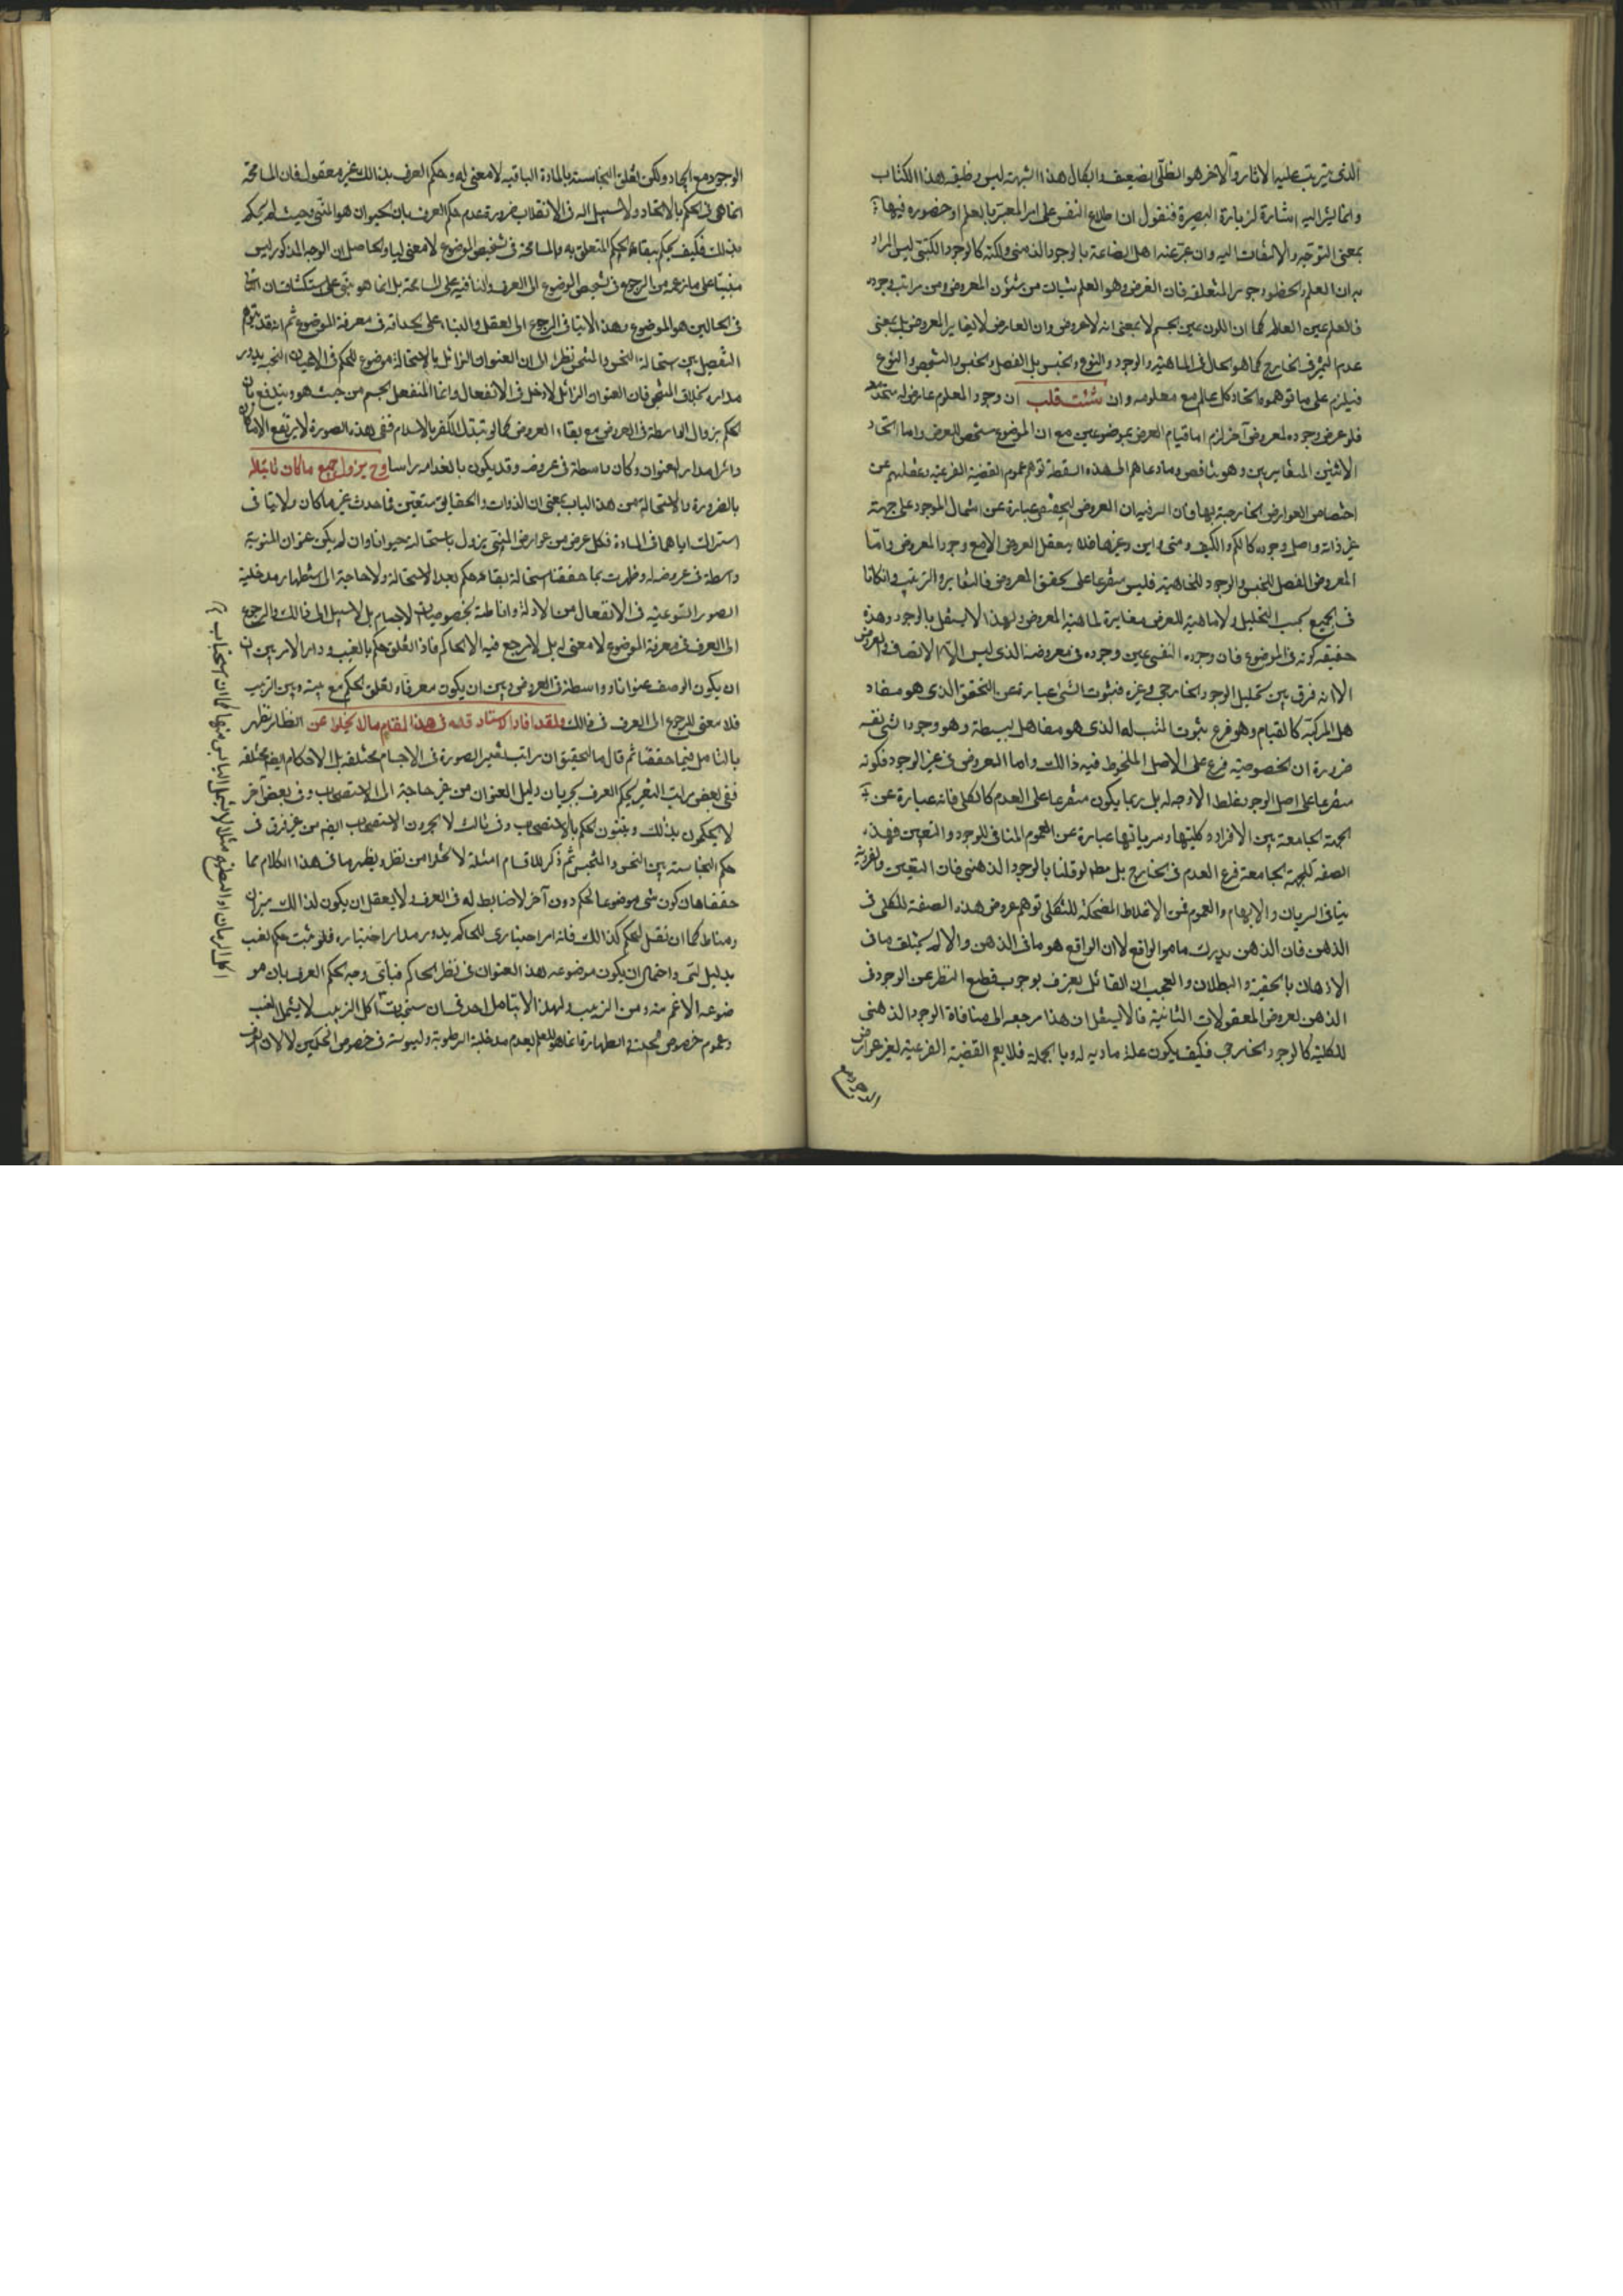 الذى يترتب عليه الاثار والاخر هو الظلى الضعيف وابطال هذا الشبهة ليس وظيفة هذا الكتاب
وانما يشر اليه اشارة لزيارة البصيرة فنقول ان اطلاع النفس على امر المعبر بالعلم او حضوره فيها
بمعنى التوجه والالتفات اليه وان عبر عنه اهل الصناعة بالوجود الذهنى ولكنه كالوجود الكتبى ليس المراد
به ان العلم والحظ وجود المتعلقه فان الغرض وهو العلم شيات من شئون المعروض ومن مراتب وجوده
فالعلم عين العالم كما ان اللون عين الجسم لا بمعنى انه لا عروض وان العارض لا يغاير المعروض بل بمعنى
عدم الميز فى الخارج كما هو الحال فى الماهية والوجود والنوع والجنس بل الفصل والجنس والشخص والنوع
فيلزم على ما توهموه اتحاد كل عالم مع معلومه وان شئت قلت ان وجود المعلوم عارض له متحد معه
فلو عرض وجوده لمعروض آخر لزم اما قيام العرض بموضوعين مع ان الموضوع مشخص للعرض واما اتحاد
الاثنين المتغايرين وهو تناقض وما دعاهم الى هذه السقطة توهم عموم القضية الفرعية وغفلتهم عن
اختصاص العوارض الخارجية بها فان السر فيه ان العروض الحقيقى عبارة عن اشتمال الموجود على جهة
غير ذاته واصل وجوده كالكم والكيف ومتى واين وغيرها فلا يعقل العروض الا مع وجود المعروض واما
المعروض الفصل للجنس والوجود للماهية فليس متفرعا على تحقق المعروض فالتغاير والترتب وان كانا
فى الجميع بحسب التحليل ولا ماهية للعرض مغايرة لماهية المعروض ولهذا لا يستقل بالوجود وهذه
حقيقة كونه فى الموضوع فان وجوده النفسى عين وجوده فى معروضه الذى ليس الا الاتصاف والعروض
الا انه فرق بين تحليل الوجود الخارجى وغيره فثبوت الشئ عبارة عن التحقق الذى هو مفاد
هل المركبة كالقيام وهو فرع ثبوت المثبت له الذى هو مفاد هل البسيطة وهو وجود الشئ نفسه
ضرورة ان الخصوصية فرع على الاصل الملحوظ فيه ذالك واما العروض فى غير الوجود فكونه
متفرعا على اصل الوجود غلط لا وجه له بل ربما يكون متفرعا على العدم كالكلى فانه عبارة عن
الجهة الجامعة بين الافراد وكليتها وسريانها عبارة عن العموم المنافى للوجود والتعين فهذه
الصفة للجهة الجامعة فرع العدم فى الخارج بل مطلقا لو قلنا بالوجود الذهنى فان التعين والفردية
ينافى السريان والابهام والعموم فمن الاغلاط المضحكة للثكلى توهم عروض هذه الصفة للكلى فى
الذهن فان الذهن يدرك ما هو الواقع لا ان الواقع هو ما فى الذهن والا لم يختلف ما فى
الاذهان بالحقية والبطلان والعجب ان القائل يعترف بوجوب قطع النظر عن الوجود فى
الذهن لعروض المعقولات الثانية فالا يستقل ان هذا مرجعه الى منافاة الوجود الذهنى
للكلية كالوجود الخارجى فكيف يكون علة ما دية له وبالجملة فلا يعم القضية الفرعية لغير عوارض
الوجود مع اتحاد ولكن تعلق النجاسة بالمادة الباقية لا معنى له وحكم العرف بذالك غير معقول فان المسامحة
انما هى فى الحكم بالاتحاد ولا سبيل اليه فى الانقلاب ضرورة عدم حكم العرف بان الحيوان هو المنى وحيث لم يحكم
بذالك فكيف يحكم ببقاء الحكم المتعلق به والمسامحة فى تشخيص الموضوع لا معنى لها والحاصل ان الوجه المذكور ليس
مبنيا على ما زعمه من الرجوع فى تشخيص الموضوع الى العرف والبناء فيه على المسامحة بل انما هو مبنى على استكشاف ان الباقى
فى الحالين هو الموضوع وهذا لا ينافى الرجوع الى العقل والبناء على الحداقة فى معرفة الموضوع ثم انه قد توهم
التفصيل بين استحالة النجس والمتنجس نظرا الى ان العنوان الزائل بالاستحالة موضوع للحكم فى الاعيان النجسة يدور
مداره بخلاف المتنجس فان العنوان الزائل لا دخل فى الانفعال وانما المنفعل الجسم من حيث هو ويندفع بان
الحكم بزوال الواسطة فى العروض مع بقاء المعروض كما لو تبدل الكفر بالاسلام ففى هذه الصورة لا يرتفع الا ما كان
دائرا مدار العنوان وكان واسطة فى عروضه وقد يكون بالغدامه راسا وح يزول جميع ما كان ثابتا له
بالضرورة والاستحالة من هذا الباب بمعنى ان الذوات والحقايق متعين فما حدث غير ما كان ولا ينافى
اشتراك اياهما فى المادة فكل عرض من عوارض المنى يزول باستحالته حيوانا وان لم يكن عنوان المنوية
واسطة فى عروضه وظهرت بما حققنا استحالة بقاء حكم بعد الاستحالة ولا حاجة الى استظهار مدخلية
الصور النوعية فى الانفعال من الادلة واناطته بخصوصيات الاجسام بل لا سبيل الى ذالك والرجوع
الى العرف فى معرفة الموضوع لا معنى له بل لا مرجع فيه الا الحاكم فاذا تعلق حكم بالعنب ودار الامر بين ان
ان يكون الوصف عنوانا وواسطة فى العروض وبين ان يكون معرفا وتعلق الحكم مع بينه وبين الزبيب
فلا معنى للرجوع الى العرف فى ذالك ولقد افاد الاستاد قده فى هذا المقام ما لا يخلو عن انظار تظهر
بالتامل فيما حققنا ثم قال ما التحقيق ان مراتب تغير الصورة فى الاجسام مختلفة بل الاحكام ايضا مختلفة
ففى بعض مراتب التغير يحكم العرف بجريان دليل العنوان من غير حاجة الى الاستصحاب وفى بعض آخر
لا يحكمون بذالك ويثبتون الحكم بالاستصحاب وفى ثالث لا يجرون الاستصحاب ايضا من غير فرق فى
حكم النجاسة بين النجس والمتنجس ثم ذكر للاقسام امثلة لا تخلو من نظر ويظهر ما فى هذا الكلام مما
حققناه ان كون شئ موضوعا لحكم دون آخر لا ضابط له فى العرف ولا يعقل ان يكون لذالك ميزان
ومناط كما ان نقل الحكم كذالك فانه امر اختيارى للحاكم يدور مدار اختياره فلو ثبت حكم لعنب
بدليل لبى واحتمال ان يكون موضوعه هذا العنوان فى نظر الحاكم فباى وجه يحكم العرف بان مو
ضوعه الاعم منه ومن الزبيب ولهذا لا يتامل احد فى ان استحباب اكل الزبيب لا يشمل العنب
وعموم خصوص الحكمين فى الطهارة انما هو للعلم بعدم مدخلية الرطوبة واليبوسة فى خصوص الحكمين لا لان العرف